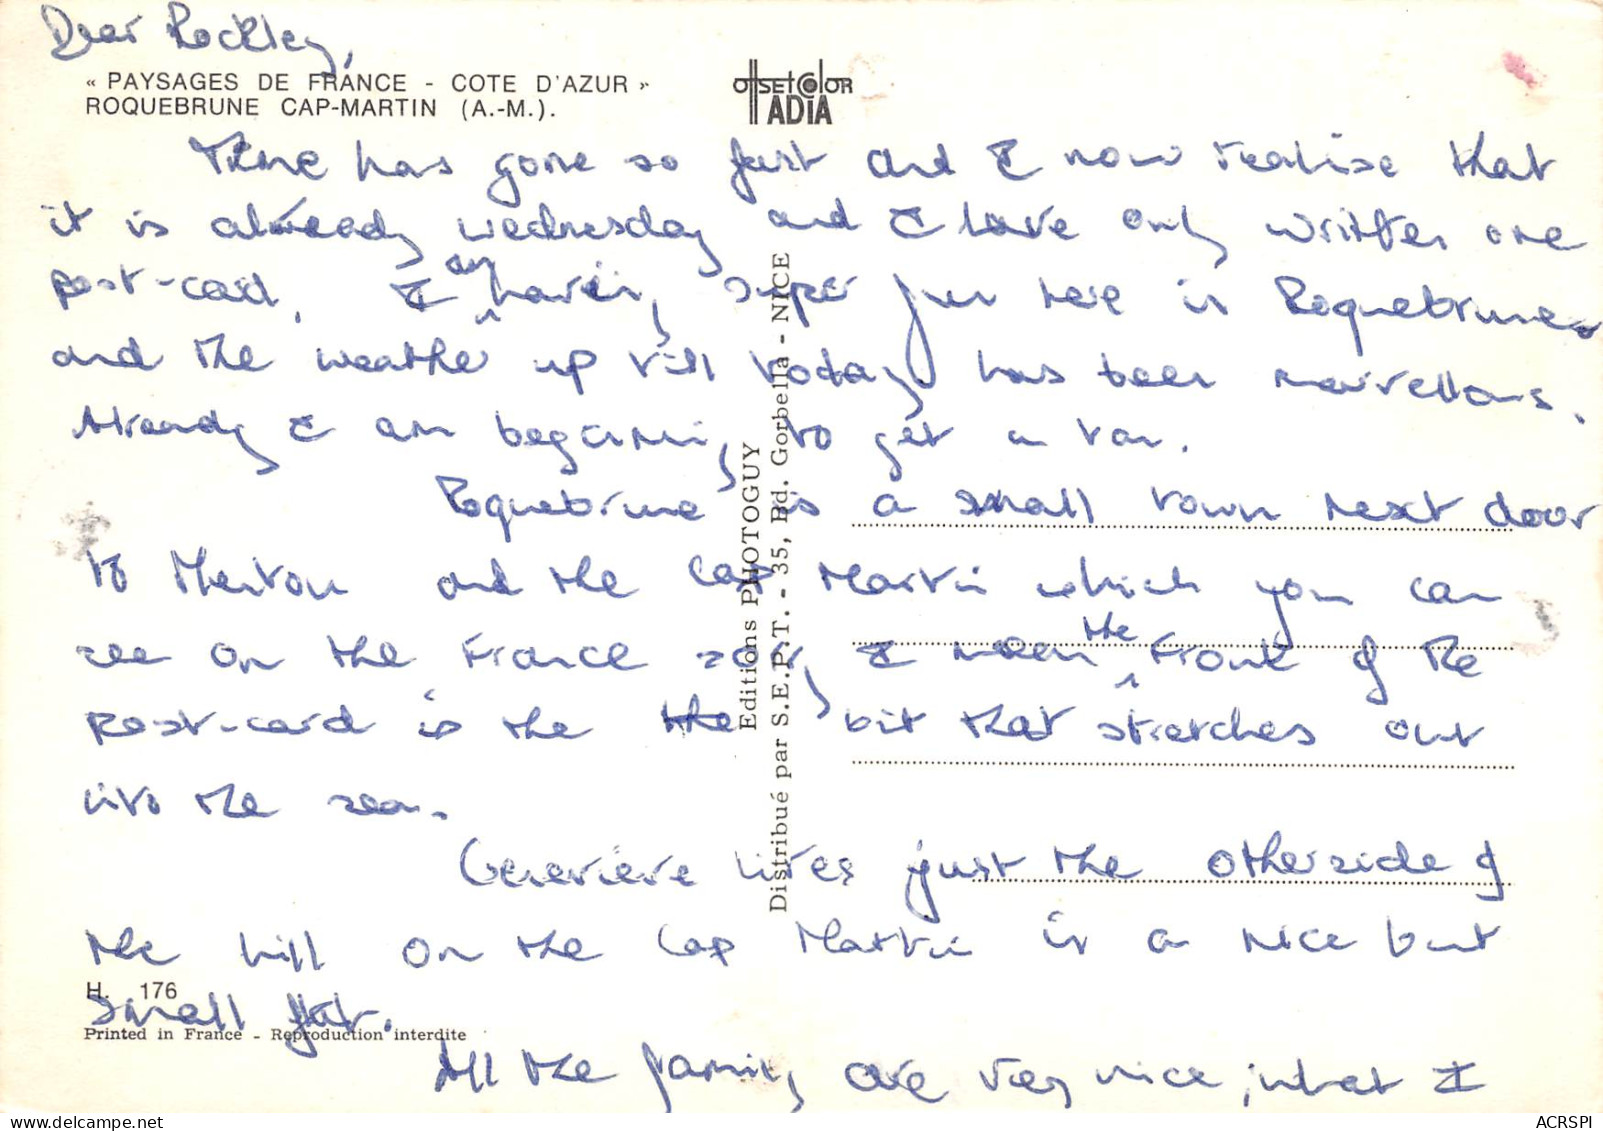 Dear Rockley,
« PAYSAGES DE FRANCE - COTE D'AZUR »
ROQUEBRUNE CAP-MARTIN (A.-M.).
OffSETCOlOR
ADIA
Time has gone so fast and I now realise that
it is already wednesday and I have only written one
post-card. I am having super fun here in Roquebrune
and the weather up till today has been marvellous.
Already I am beginning to get a tan.
Roquebrune is a small town next door
to Menton and the Cap Martin which you can
see on the France say, I mean the front of the
post-card is the the bit that stretches out
into the sea.
Genevieve lives just the otherside of
the hill on the Cap Martin in a nice but
small flat.
All the family are very nice, what I
Editions PHOTOGUY
Distribué par S.E.P.T. - 35, Bd. Gorbella - NICE
H. 176
Printed in France - Reproduction interdite
ACRSPI